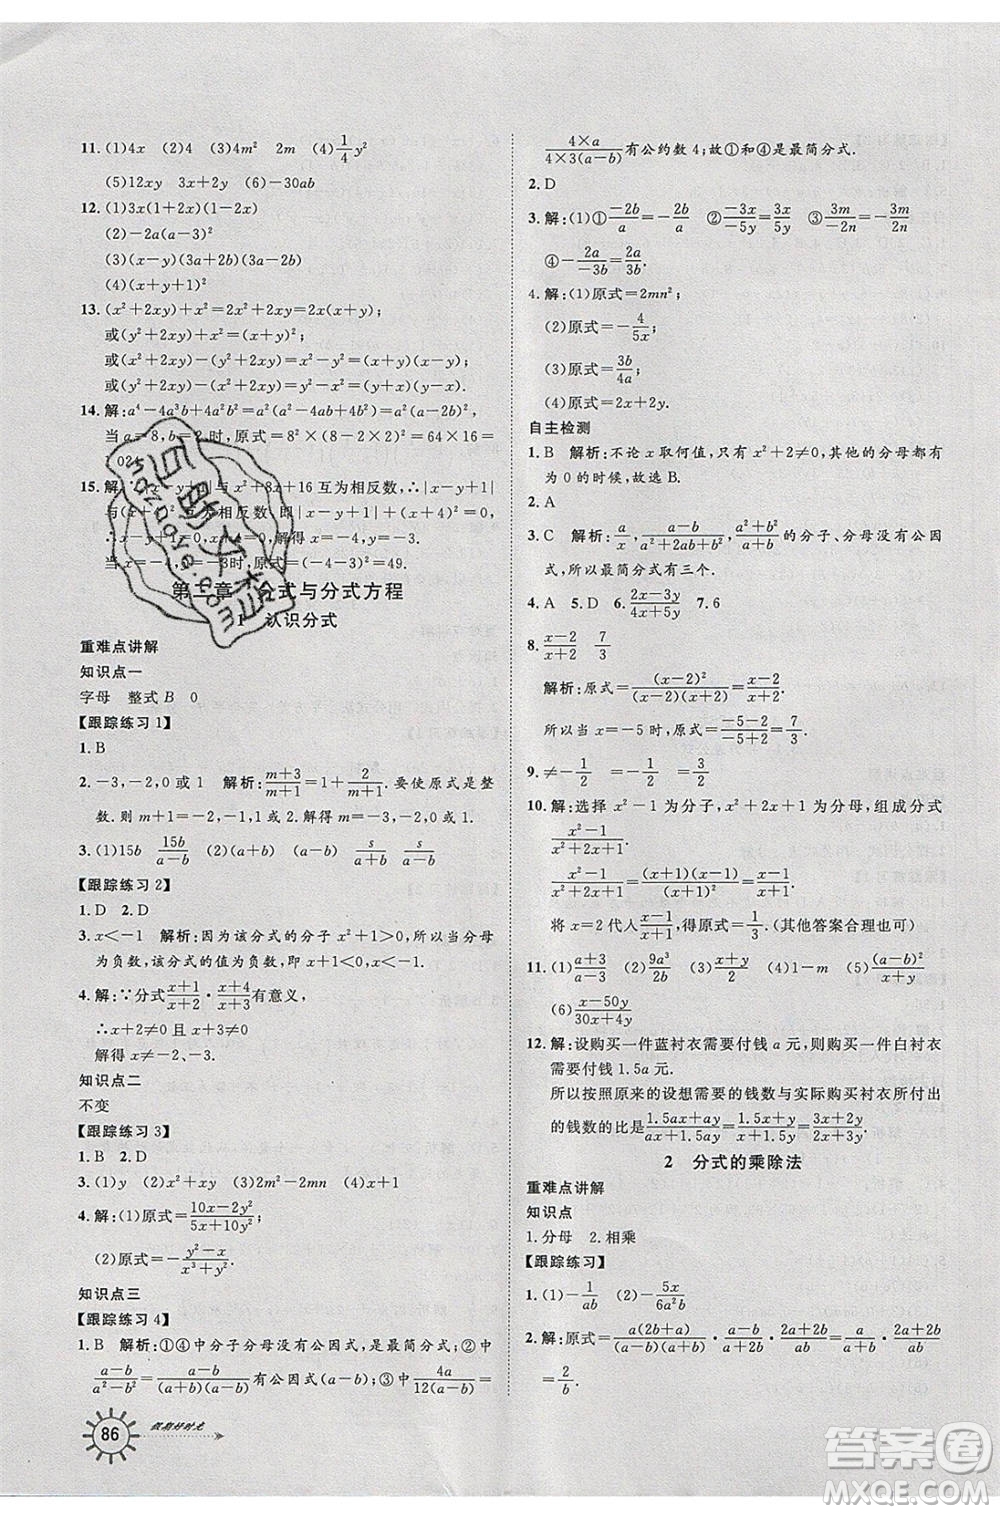 11. (1)4x  (2)4  (3)4m²  2m  (4)1/4 y²
(5)12xy  3x+2y  (6)-30ab
12. (1)3x(1+2x)(1-2x)
(2)-2a(a-5)²
(3)(x-y)(3a+2b)(3a-2b)
(4)(x+y+1)²
13. (x²+2xy)+x²=2x²+2xy=2x(x+y);
或(y²+2xy)+x²=(x+y)²;
或(x²+2xy)-(y²+2xy)=x²-y²=(x+y)(x-y);
或(y²+2xy)-(x²+2xy)=y²-x²=(y+x)(y-x).
14. 解:a⁴-4a³b+4a²b²=a²(a²-4ab+4b²)=a²(a-2b)²
当a=8,b=2时,原式=8²×(8-2×2)²=64×16=
15. 解:∵|x-y+1|与x²+8x+16互为相反数,∴|x-y+1|
与(x+4)²互为相反数,即|x-y+1|+(x+4)²=0,
∴x-y+1=0,x+4=0,解得x=-4,y=-3.
当x=-4,y=-3时,原式=(-4-3)²=49.
分式与分式方程
认识分式
重难点讲解
知识点一
字母  整式B  0
【跟踪练习1】
1. B
2. -3,-2,0或1  解析:(m+3)/(m+1)=1+2/(m+1).要使原式是整
数.则m+1=-2,-1,1或2.解得m=-3,-2,0或1.
3. (1)15b  15b/(a-b)  (2)(a+b)  (a-b)  s/(a+b)  s/(a-b)
【跟踪练习2】
1. D  2. D
3. x<-1  解析:因为该分式的分子x²+1>0,所以当分母
为负数,该分式的值为负数,即x+1<0,解得x<-1.
4. 解:∵分式(x+1)/(x+2)·(x+4)/(x+3)有意义,
∴x+2≠0且x+3≠0
解得x≠-2,x≠-3.
知识点二
不变
【跟踪练习3】
1. B  2. D
3. (1)y  (2)x²+xy  (3)x  (4)x+1
4. 解:(1)原式=(10x-2y²)/(5x+10y²);
(2)原式=-(y²-x²)/(x³+y²).
知识点三
【跟踪练习4】
1. B  解析:①④中分子分母没有公因式,是最简分式;②中
(a-b)/(a²-b²)=(a-b)/((a+b)(a-b))有公因式(a-b);③中4a/(12(a-b))=
86
假期好时光
(4×a)/(4×3(a-b))有公约数4;故①和④是最简分式.
2. D
3. 解:(1)①-2b/a=-2b/a  ②-3x/-5y=3x/5y  ③3m/-2n=-3m/2n
④-2a/-3b=2a/3b.
4. 解:(1)原式=2mn²;
(2)原式=-4/5x;
(3)原式=3b/4a;
(4)原式=2x+2y.
自主检测
1. B  解析:不论x取何值,x²+2≠0,其他的分母都有
为0的时候,故选B.
2. A
3. C  解析:a/x,(a-b)/(a²+b²),(a²+b²)/(a+b)的分子、分母没有公因
式,所以最简分式有三个.
4. A  5. D  6. (2x-3y)/(4x+6y)  7. 6
8. (x-2)/(x+2)  7/3
解析:原式=(x-2)²/((x-2)(x+2))=(x-2)/(x+2).
所以当x=-5时,原式=(-5-2)/(-5+2)=7/3.
9. ≠-1/2  =-1/2
10. 解:选择x²-1为分子,x²+2x+1为分母,组成分式
(x²-1)/(x²+2x+1).
(x²-1)/(x²+2x+1)=((x+1)(x-1))/(x+1)²=(x-1)/(x+1).
将x=2代人(x-1)/(x+1),得原式=1/3.(其他答案合理也可)
11. (1)(a+3)/(a-3)  (2)9a³/b  (3)-1/2  (4)(x+y)/2  (5)(a-b)²/(a+b)
(6)(x-50y)/(30x+4y)
12. 解:设购买一件蓝衬衣需要付钱a元,则购买一件白衬衣
需要付钱1.5a元.
所以按照原来的设想需要的钱数与实际购买衬衣所付出
的钱数的比是(1.5ax+ay)/(ax+1.5ay)=(1.5x+y)/(x+1.5y)=(3x+2y)/(2x+3y).
2  分式的乘除法
重难点讲解
知识点
1. 分母  2. 相乘
【跟踪练习1】
1. (1)-1/ab  (2)-5x/6a²b²
2. 解:原式=a(2b+a)/((a+b)(a-b))·(a-b)/(2a+b)·(2a+b)/(a+2b)=a/(a+b)·(a+b)/a²·2a/b
=2/b.